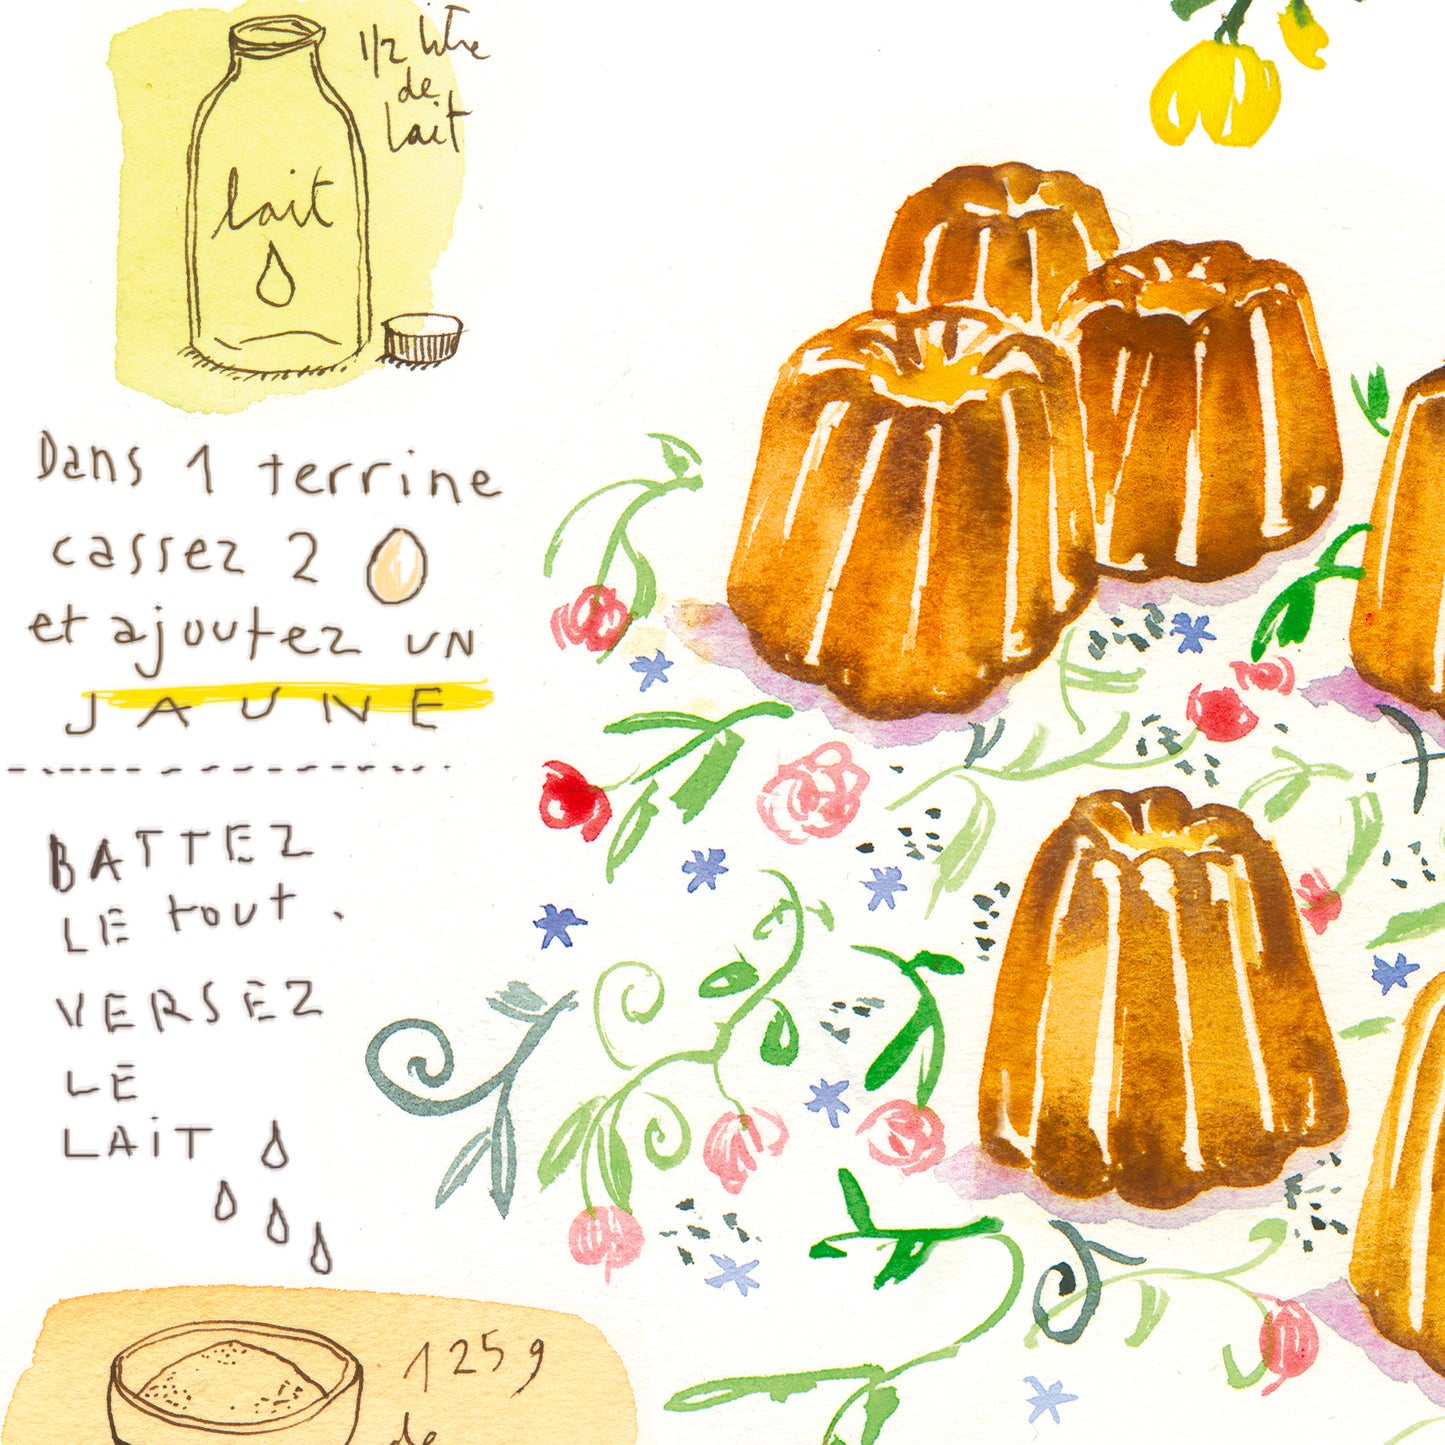 1/2 litre
de
lait
lait
Dans 1 terrine
cassez 2
et ajoutez UN
JAUNE
BATTEZ
LE tout.
VERSEZ
LE
LAiT
125g
de